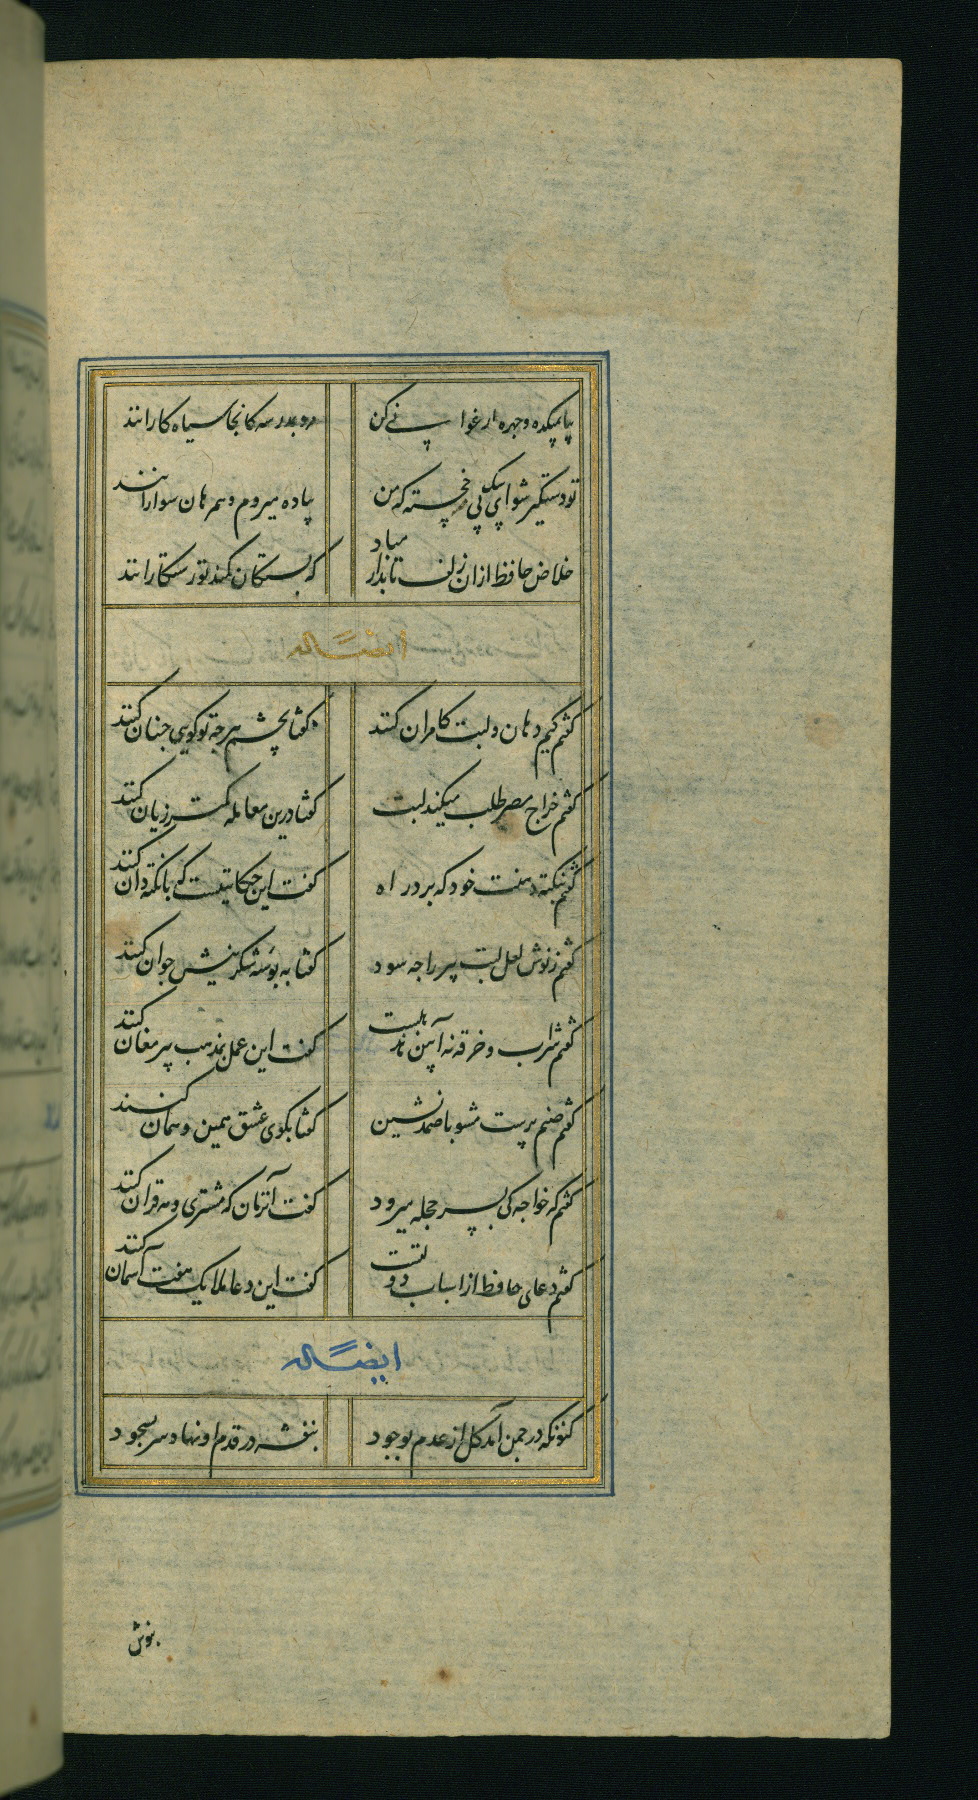 بیا بمیکده و چهره ارغوانی کن مرو بمدرسه کانجا سیاه کارانند
تو دستگیر شو ای پیک پی خجسته که من پیاده میروم و همرهان سوارانند
خلاص حافظ ازان زلف تابدار مباد که بستگان کمند تو رستکارانند
ایضاً له
کفتم کیم دهان و لبت کامران کنند کفتا بچشم هرچه تو کویی چنان کنند
کفتم خراج مصر طلب میکند لبت کفتا درین معامله کمتر زیان کنند
کفتم بنکته دهنت خود که برد راه کفت این حکایتیست که با نکته دان کنند
کفتم ز نوش لعل لبت پیر را چه سود کفتا به بوسه شکرینش جوان کنند
کفتم شراب و خرقه نه آیین مذهبست کفت این عمل بمذهب پیر مغان کنند
کفتم صنم پرست مشو با صمد نشین کفتا بکوی عشق همین و همان کنند
کفتم که خواجه کی بسر حجله میرود کفت آنزمان که مشتری و مه قران کنند
کفتم دعای حافظ از اسباب دولتست کفت این دعا ملایک هفت آسمان کنند
ایضاً له
کنونکه در چمن آمد کل از عدم بوجود بنفشه در قدم او نهاد سر بسجود
بنوش